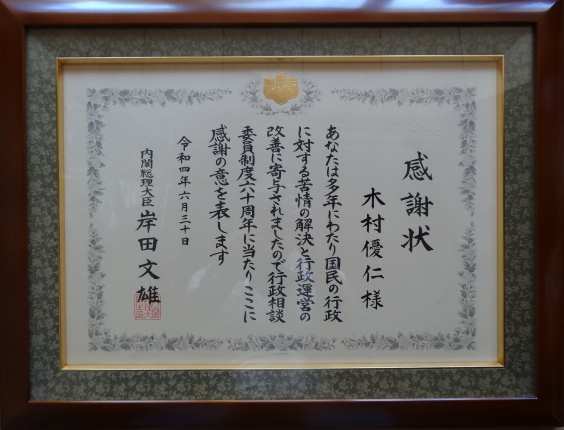 感謝状
木村優仁様
あなたは多年にわたり国民の行政
に対する苦情の解決と行政運営の
改善に寄与されましたので行政相談
委員制度六十周年に当たりここに
感謝の意を表します
令和四年六月三十日
内閣総理大臣 岸田文雄